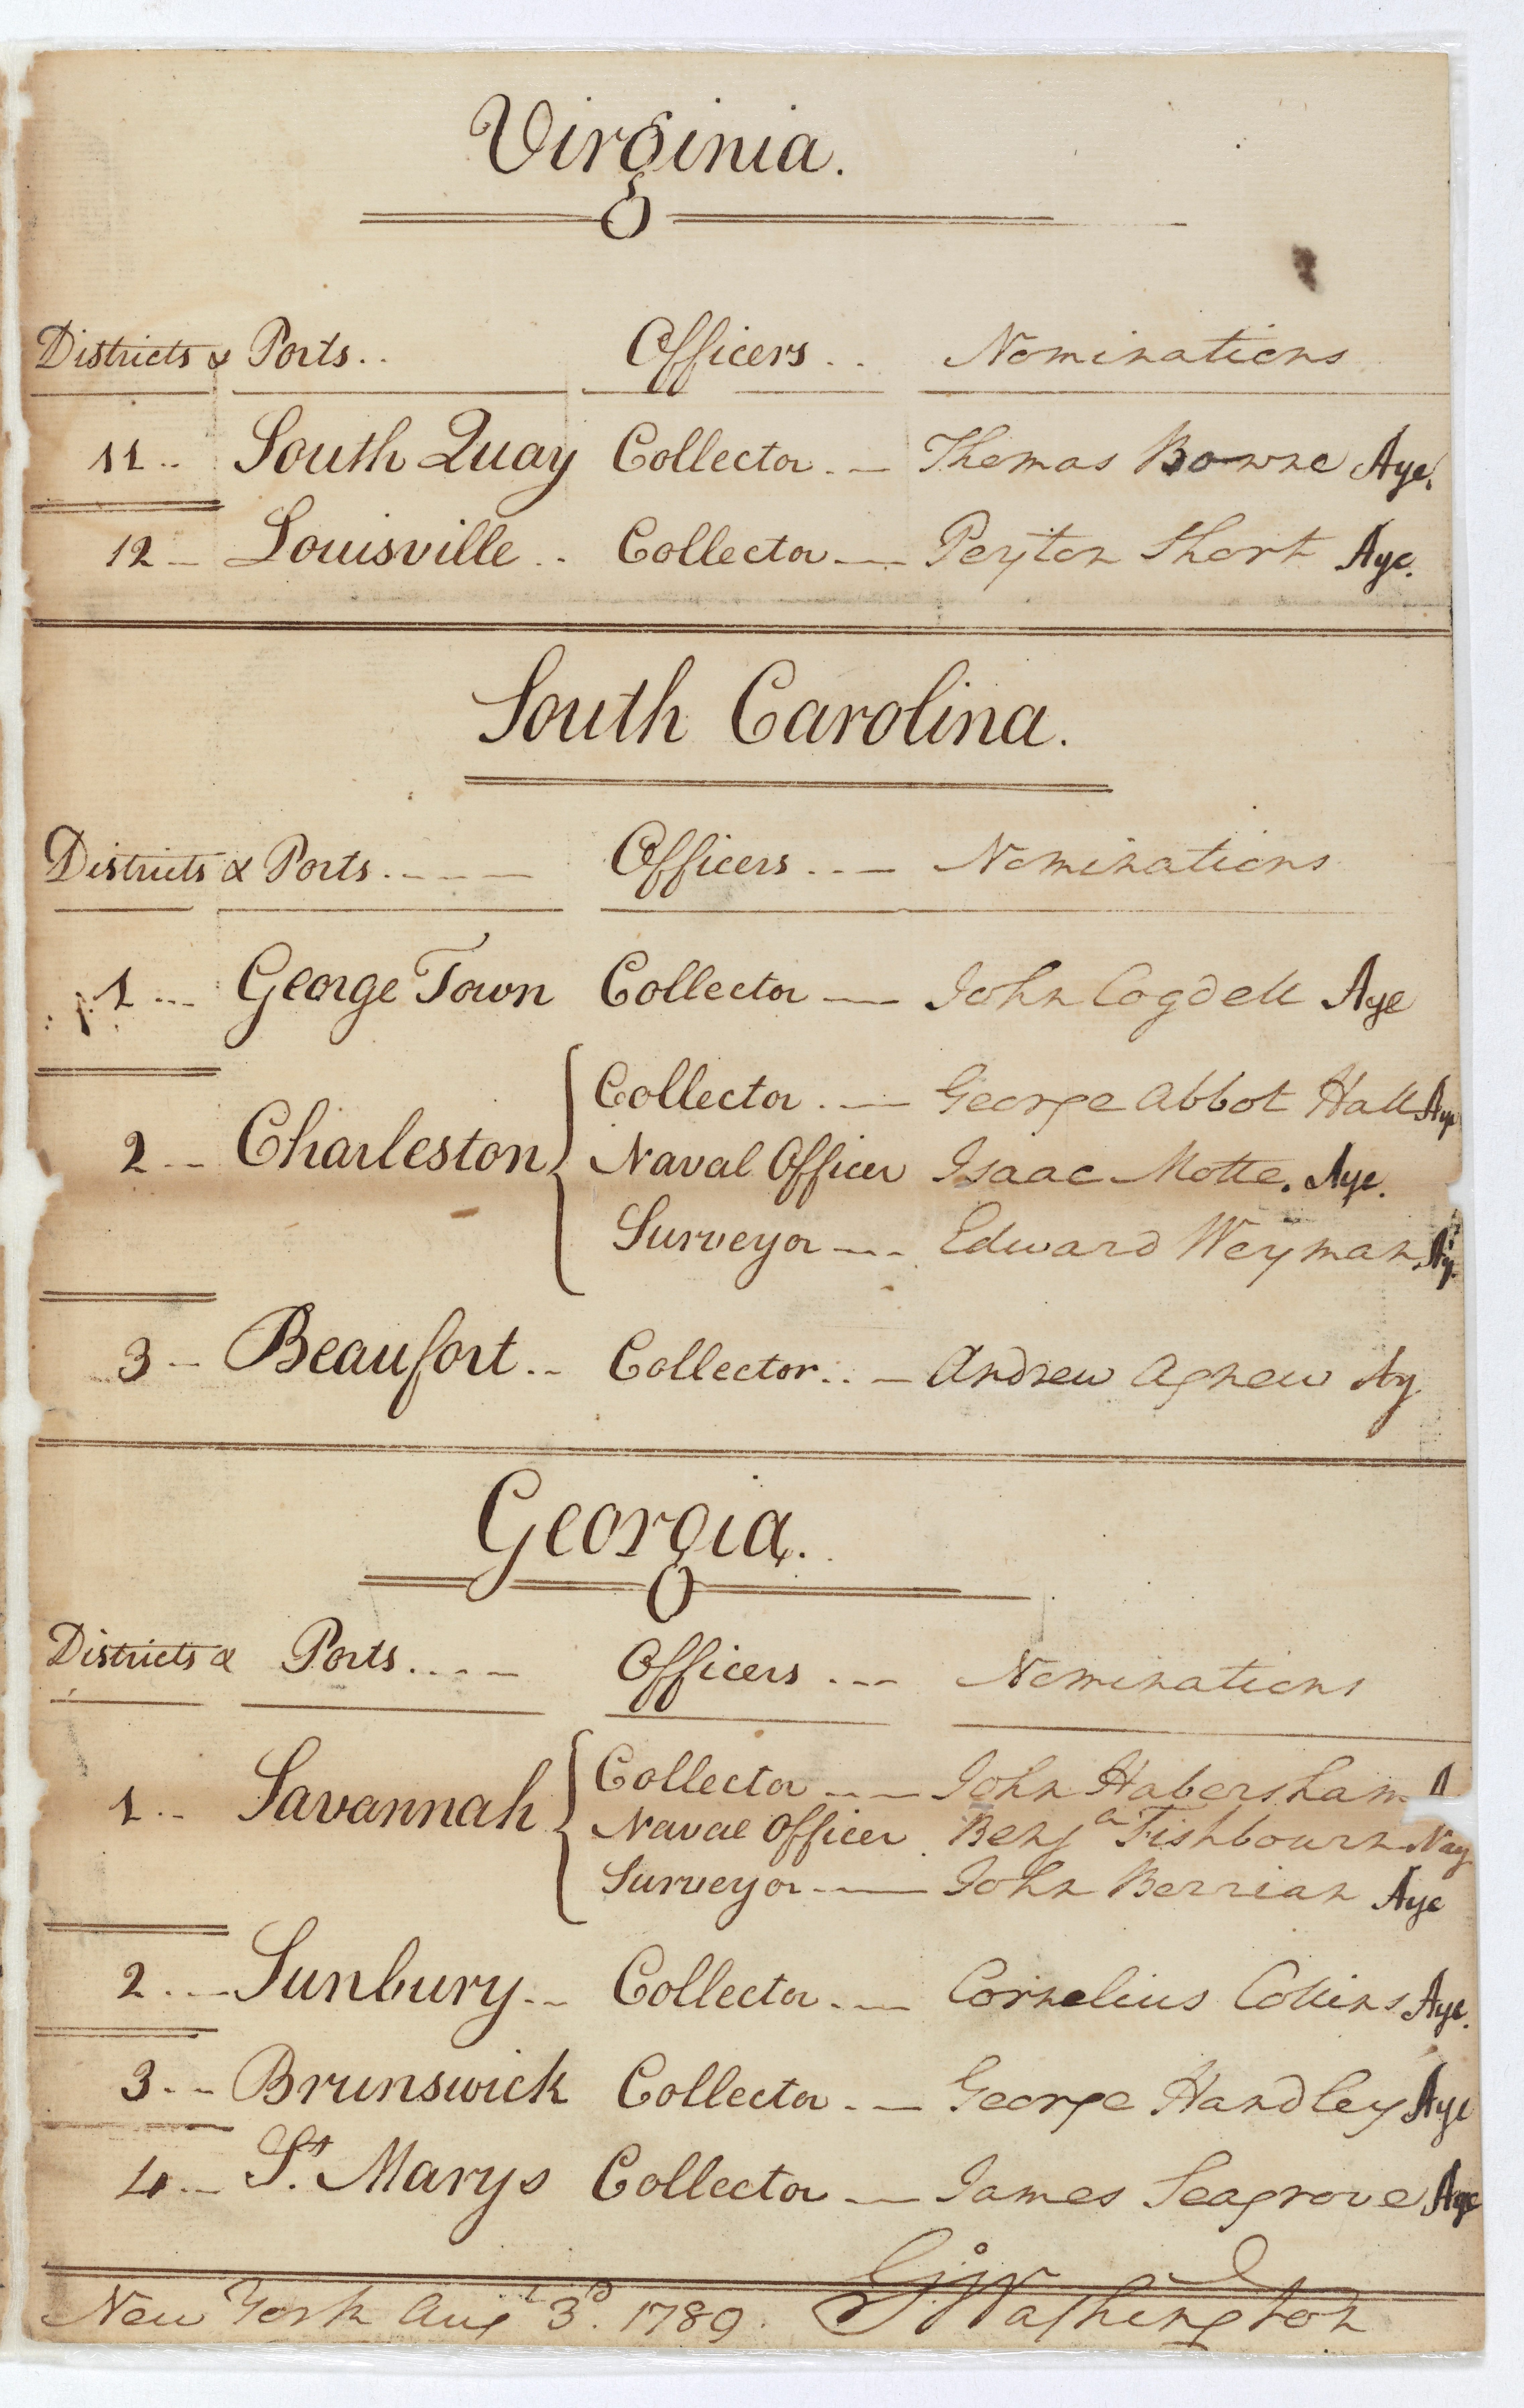 Virginia.
Districts & Ports.. Officers.. Nominations
11.. South Quay Collector.— Thomas Bowne Aye.
12— Louisville.. Collector— Peyton Short Aye.
South Carolina.
Districts & Ports.---- Officers..— Nominations
1... George Town Collector— John Cogdell Aye
Collector.— George Abbot Hall Aye
2.. Charleston Naval Officer Isaac Motte. Aye.
Surveyor--- Edward Weyman Ay.
3— Beaufort.. Collector..— Andrew Agnew Ay
Georgia.
Districts & Ports.... Officers... Nominations
Collector..— John Habersham A
1.. Savannah Naval Officer Benjⁿ Fishbourn Nay
Surveyor— John Berrian Aye
2..— Sunbury.. Collector.— Cornelius Collins Aye.
3.. Brunswick Collector.— George Handley Aye
4.. Sᵗ. Marys Collector— James Seagrove Aye
New York Augᵗ 3ᵈ. 1789. Gº Washington